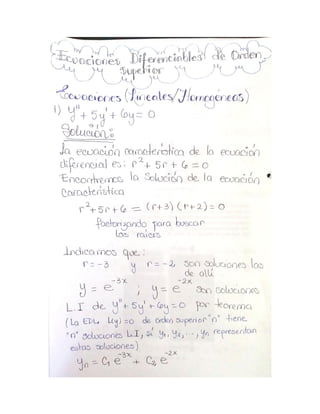 Ecuaciones Diferenciables de Orden
Superior
Ecuaciones (Lineales/Homogéneas)
1) y'' + 5y' + 6y = 0
Solución:
La ecuación característica de la ecuación
diferencial es: r² + 5r + 6 = 0
Encontremos la solución de la ecuación
Característica
r² + 5r + 6 = (r+3) (r+2) = 0
factorizando para buscar
las raíces
Indicamos que:
r = -3 y r = -2 son soluciones las
de allí
y = e^-3x ; y = e^-2x son soluciones
L.I de y'' + 5y' + 6y = 0 por teorema
(La EDL L(y) = 0 de orden superior "n" tiene
"n" soluciones L.I, si y₁, y₂, ..., yₙ representan
estas soluciones)
yₙ = C₁ e^-3x + C₂ e^-2x